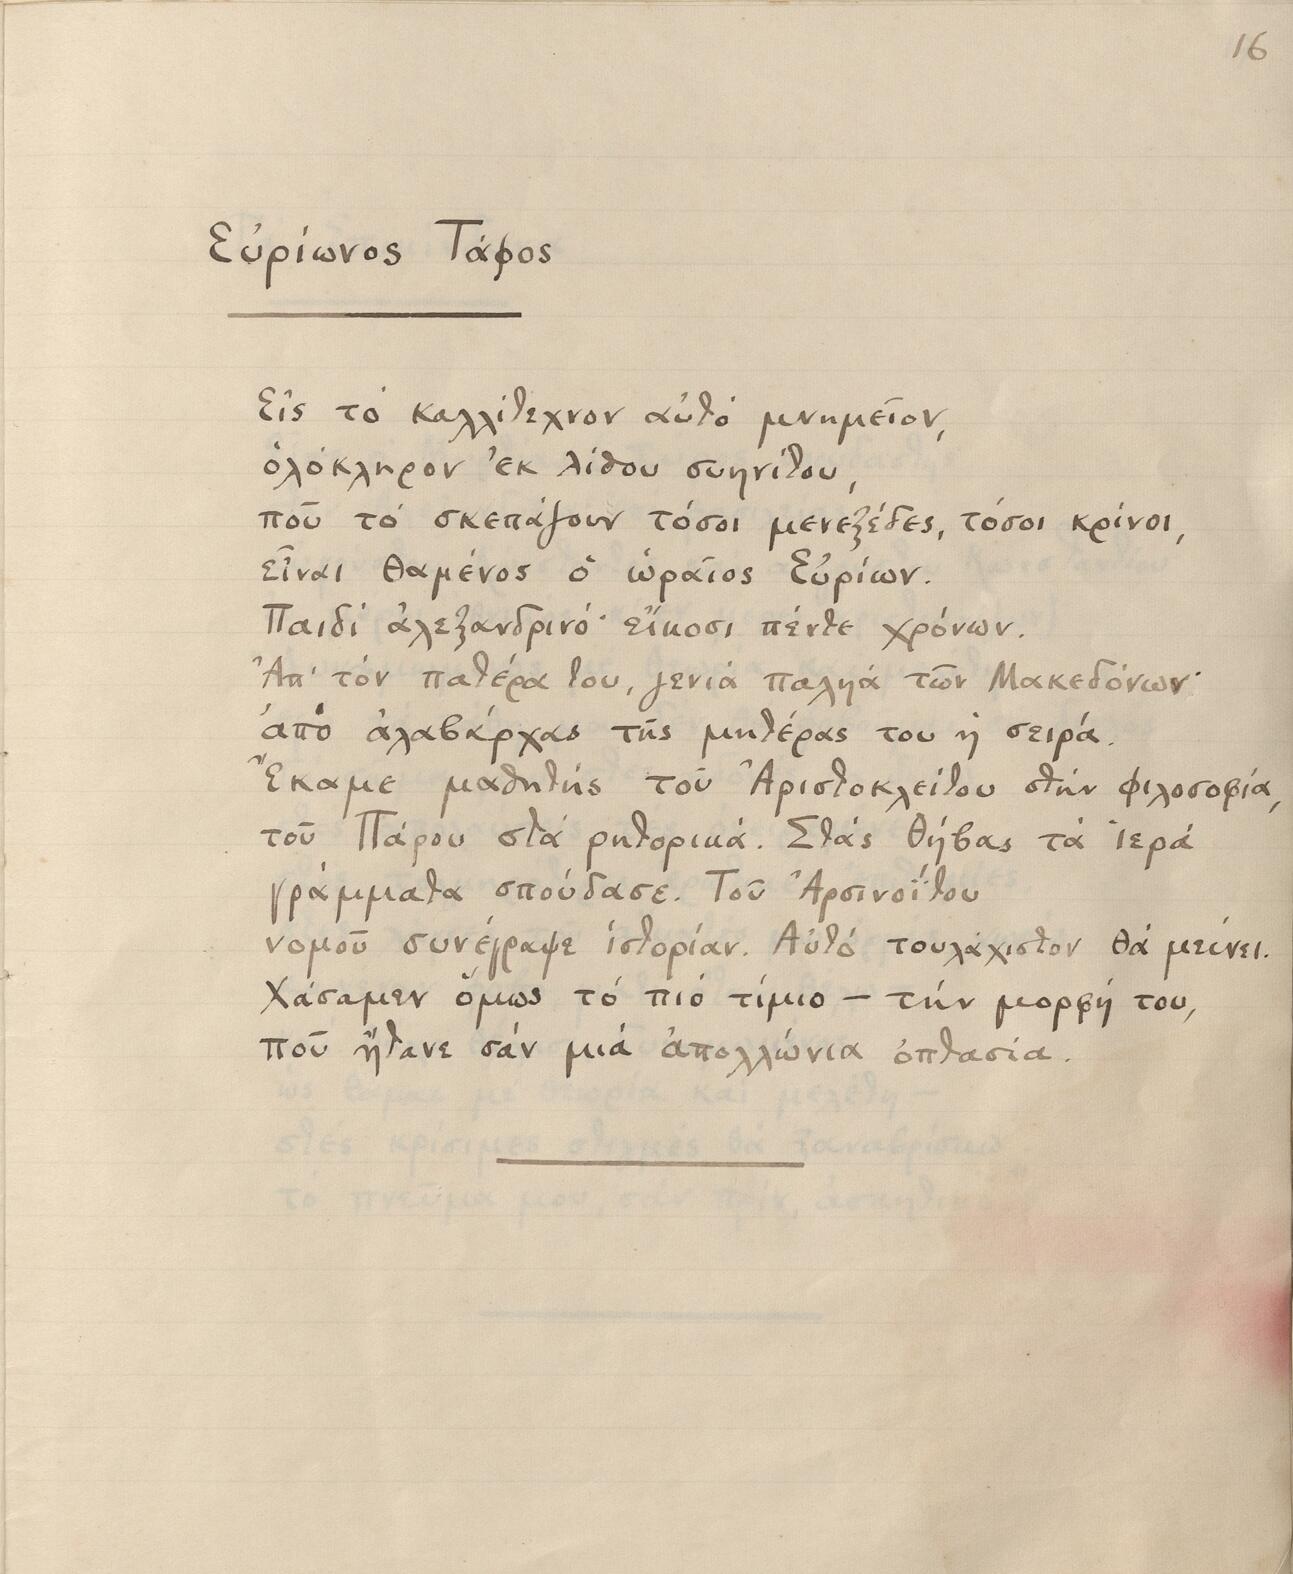 16
Εὐρίωνος Τάφος
Εἰς τὸ καλλίτεχνον αὐτὸ μνημεῖον,
ὁλόκληρον ἐκ λίθου συηνίτου,
ποῦ τὸ σκεπάζουν τόσοι μενεξέδες, τόσοι κρίνοι,
εἶναι θαμένος ὁ ὡραῖος Εὐρίων.
Παιδὶ ἀλεξανδρινό· εἴκοσι πέντε χρόνων.
Ἀπ' τὸν πατέρα του, γενιὰ παληὰ τῶν Μακεδόνων·
ἀπὸ ἀλαβάρχας τῆς μητέρας του ἡ σειρά.
Ἔκαμε μαθητὴς τοῦ Ἀριστοκλείτου στὴν φιλοσοφία,
τοῦ Πάρου στὰ ρητορικά. Στὰς Θήβας τὰ ἱερὰ
γράμματα σπούδασε. Τοῦ Ἀρσινοΐτου
νομοῦ συνέγραψε ἱστορίαν. Αὐτὸ τουλάχιστον θὰ μείνει.
Χάσαμεν ὅμως τὸ πιὸ τίμιο — τὴν μορφή του,
ποῦ ἤτανε σὰν μιὰ ἀπολλώνια ὀπτασία.